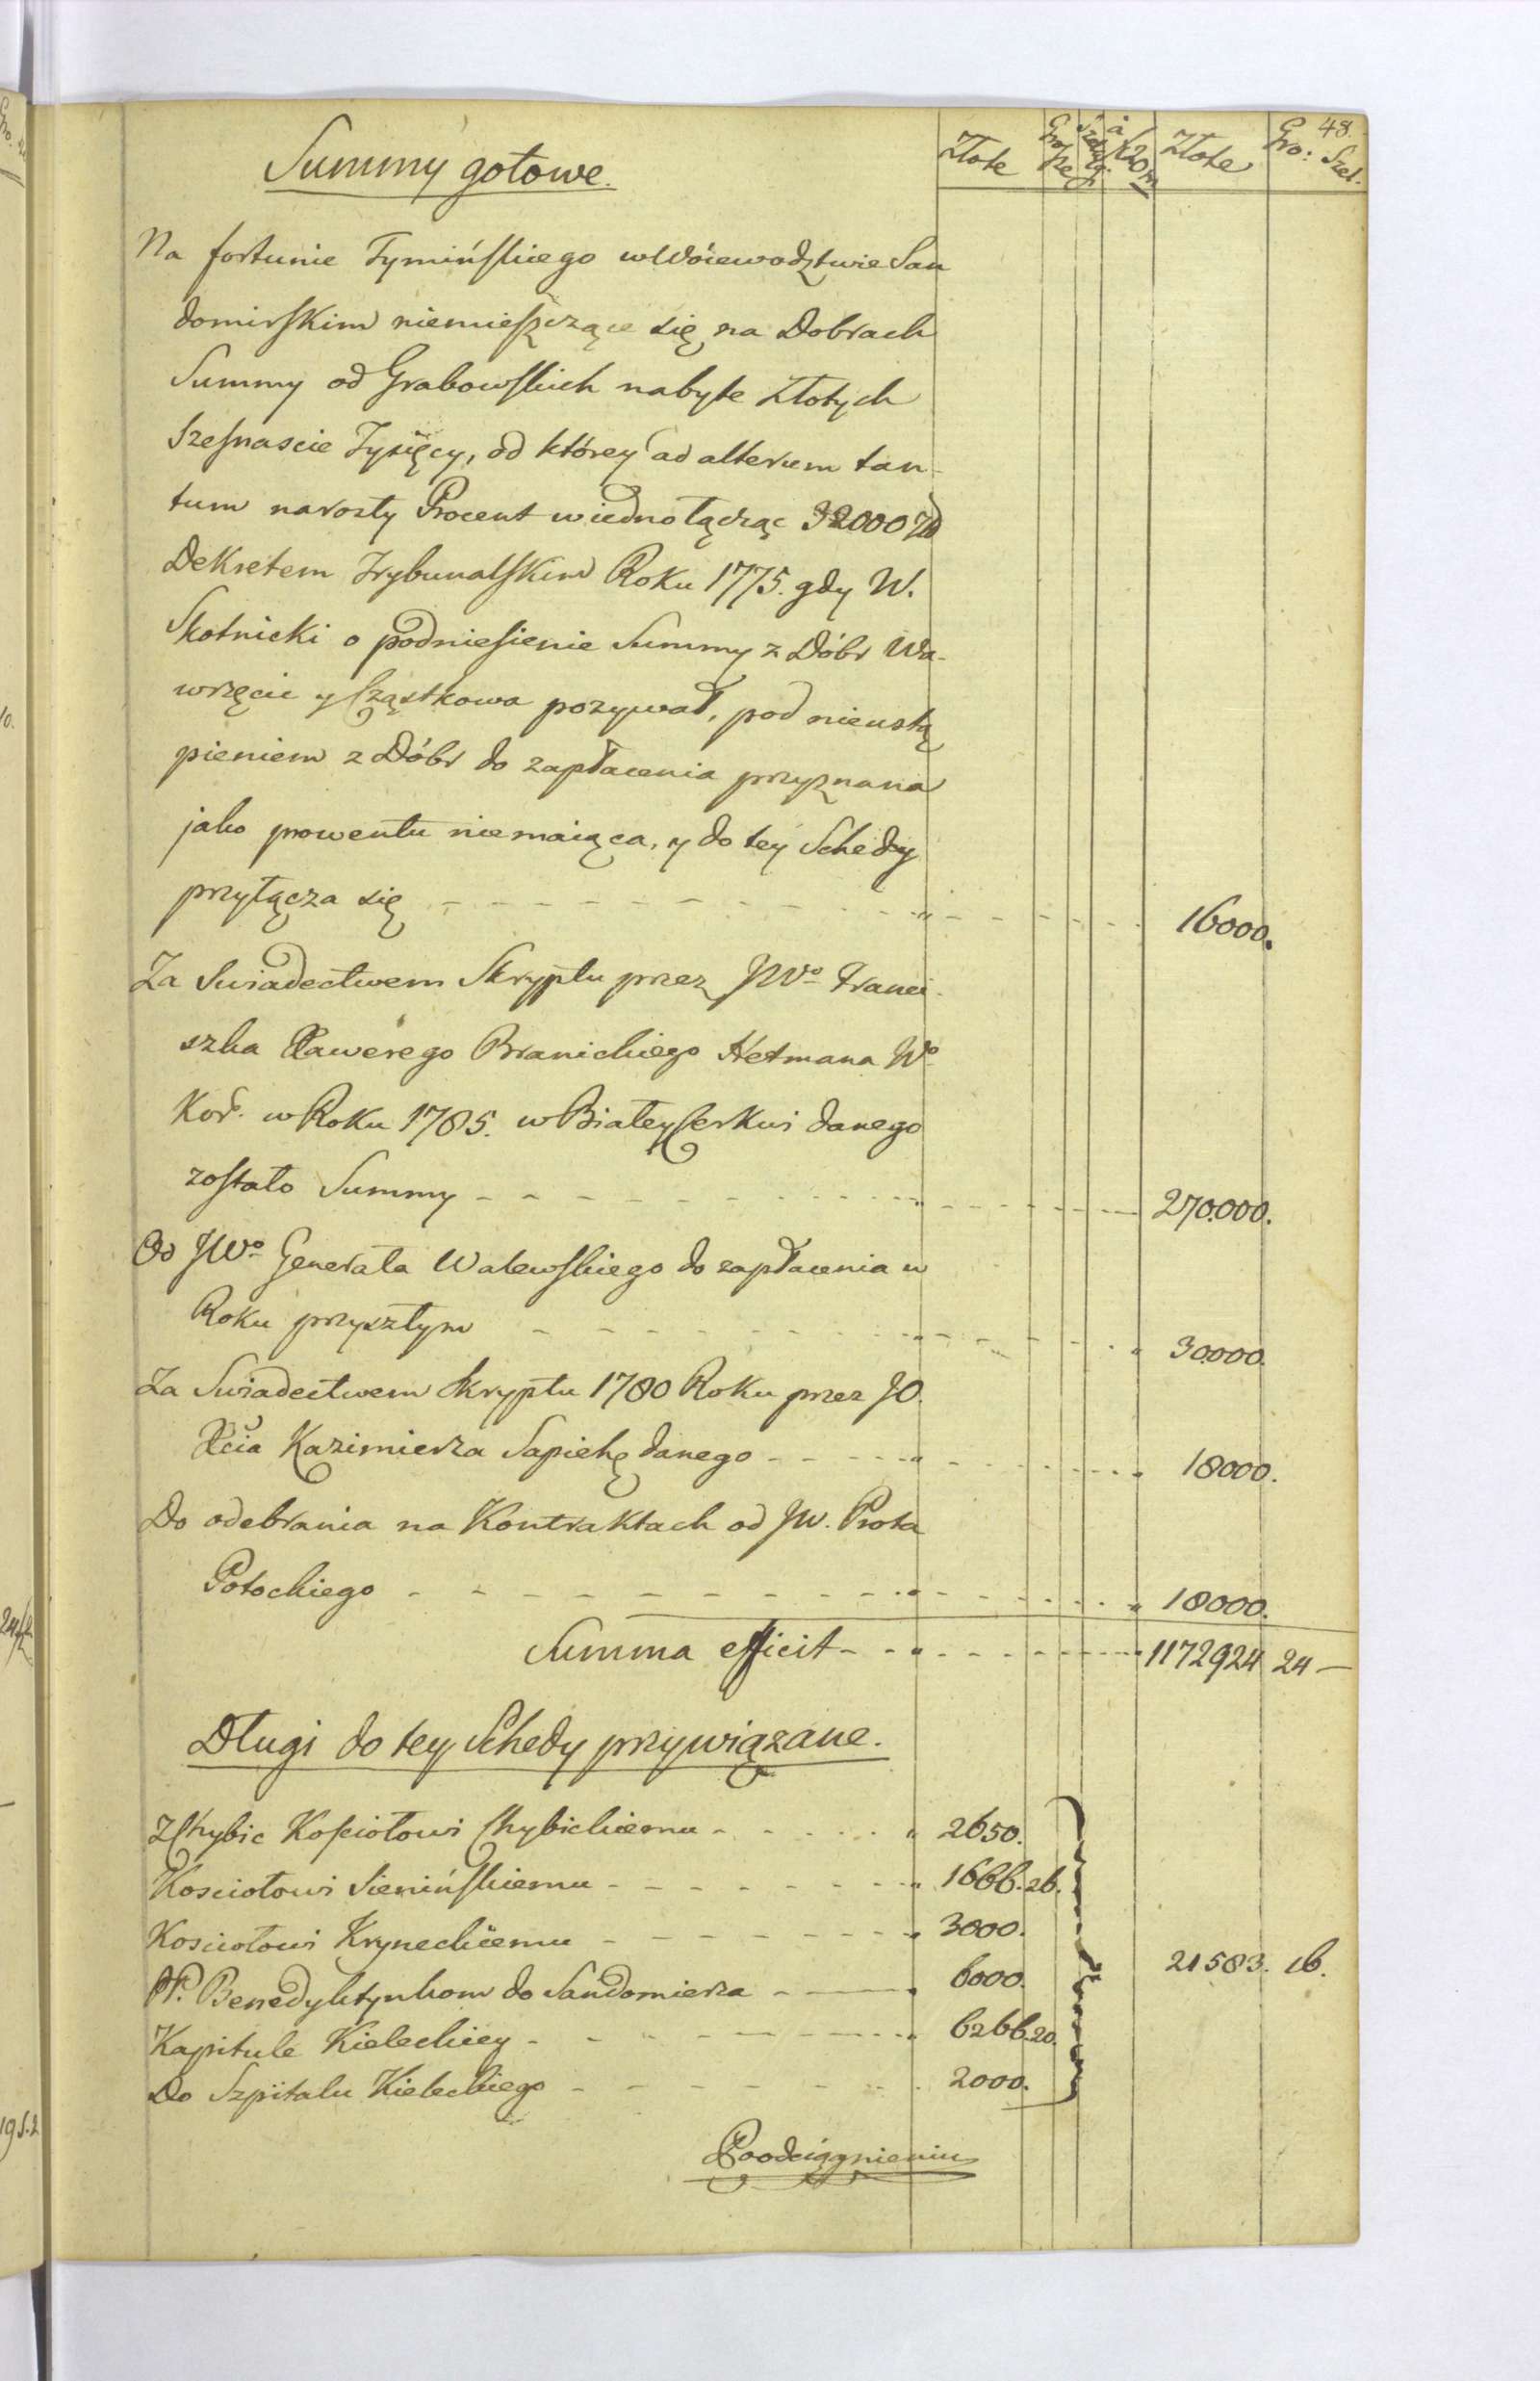 48.
Złote Grosze Szelągi à 120 m Złote Gro: Szel.
Summy gotowe.
Na fortunie Tymińskiego w Wóiewodztwie San
domirskim niemieszczące się na Dobrach
Summy od Grabowskich nabyte Złotych
Szesnascie Tysięcy, od którey ad alterum tan-
tum narosły Procent w iedno łącząc 32000 Zł
Dekretem Trybunalskim Roku 1775. gdy W.
Skotnicki o podniesienie Summy z Dóbr Wa-
wrzęcic y Cząstkowa pozywał, pod nieustą
pieniem z Dóbr do zapłacenia przyznana
jako prowentu niemaiąca, y do tey Schedy
przyłącza się - - - 16000.
Za Swiadectwem Skryptu przez JWo Franci-
szka Xawerego Branickiego Hetmana Wo
Kor. w Roku 1785. w Białey Cerkwi danego
zostało Summy - - - 270.000.
Od JWo Generała Walewskiego do zapłacenia w
Roku przyszłym - - - 30000.
Za Swiadectwem Skryptu 1780 Roku przez JO.
Xcia Kazimierza Sapiehę danego - - - 18000.
Do odebrania na Kontraktach od JW. Prota
Potockiego - - - 18000.
Summa efficit - - - 1172924 24 —
Długi do tey Schedy przywiązane.
Z Chybic Kościołowi Chybickiemu - - - 2650.
Kosciołowi Sienińskiemu - - - 1666. 26.
Kosciołowi Kryneckiemu - - - 3000.
PP. Benedyktynkom do Sandomierza - - - 6000. 21583. 16.
Kapitule Kieleckiey - - - 6266. 20.
Do Szpitalu Kieleckiego - - - 2000.
Po odciągnieniu